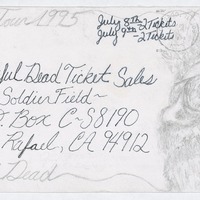 Tour 1995
July 8th - 2 Tickets
July 9th - 2 Tickets
ful Dead Ticket Sales
Soldier Field~
. Box C~S8190
Rafael, CA 94912
Dead